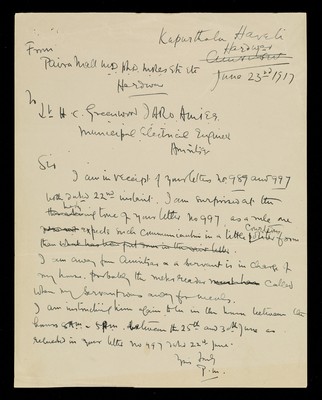 Kapurthala Haveli
From Hardwar
Amritsar
Paira Mall
June 23rd 1917
Hardwar
To
Lt H. C. Greenwood
Municipal Electrical Engineer
Amritsar
Sir
I am in receipt of your letters no 989 and 997
both dated 22nd instant. I am surprised at the
tone of your letter no 997 as a rule one
expects such communications in a little polite form
than what has been put down in the
I am away from Amritsar a servant is in charge of
my house. probably the meter reader called
when my servant was away for meals.
I am instructing him again to be in the house between the
hours 6 AM - 5 PM. between the 25th and 30th June as
requested in your letter no 997 dated 22nd June.
Yours truly
P. M.